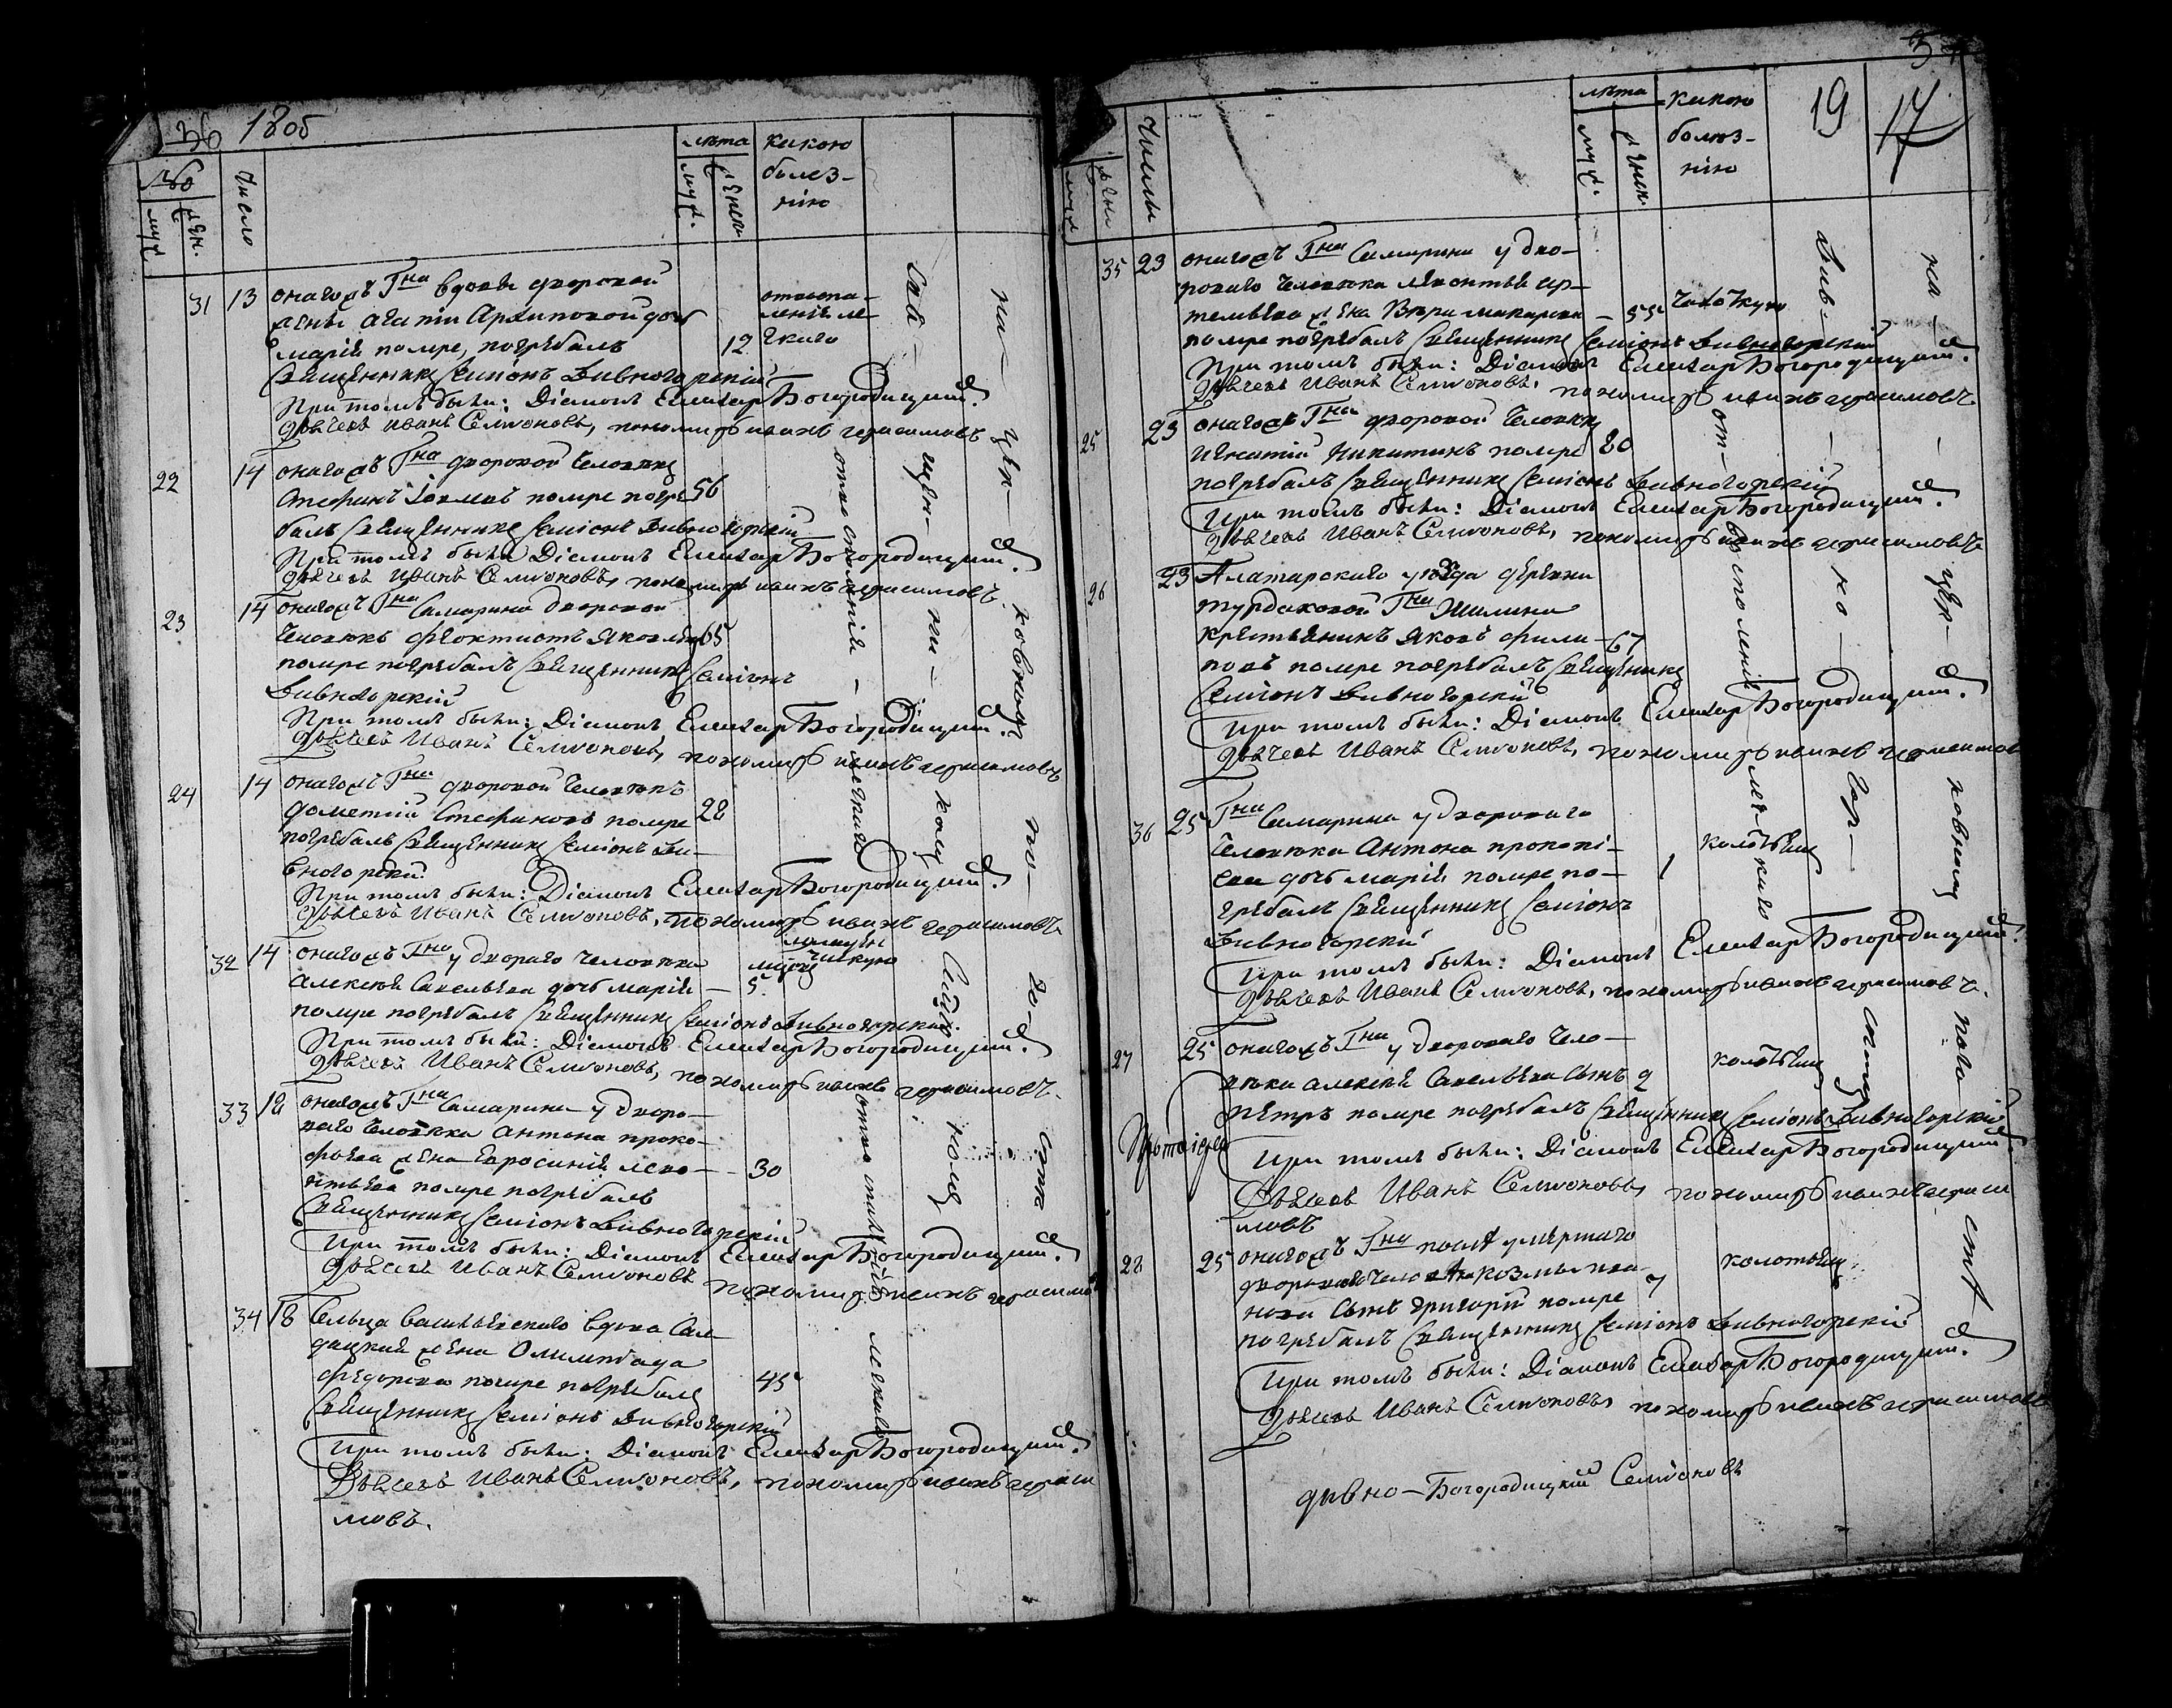 36 1805
№ Число лѣта какою
муж. жен. муж. женск. болез-
нію
31 13 онагожъ Гна вдовы дворовой
жены Агапіи Архиповой дочь
Марія помре, погребалъ 12
священникъ Семіонъ Дивногорскій
При томъ были: Діаконъ Елеазар Богородицкій.
дьячекъ Иванъ Семионовъ, пономарь иванъ герасимовъ
22 14 онагожъ Гна дворовой человѣкъ
Стефанъ помре погре 56
балъ священникъ Семіонъ Дивногорскій
При томъ были Діаконъ Елеазар Богородицкій.
дьячекъ Иванъ Семионовъ, пономарь иванъ герасимовъ
23 14 онагожъ Гна Самарина дворовой
человѣкъ Феоктистъ Яковлевъ 65
помре погребалъ священникъ Семіонъ
Дивногорскій
При томъ были: Діаконъ Елеазар Богородицкій.
дьячекъ Иванъ Семионовъ, пономарь иванъ герасимовъ
24 14 онагожъ Гна дворовой человѣкъ
Дометій Стефановъ помре 28
погребалъ священникъ Семіонъ Ди-
вногорскій
При томъ были: Діаконъ Елеазар Богородицкій.
дьячекъ Иванъ Семионовъ, пономарь иванъ герасимовъ
32 14 онагожъ Гна у двораго человѣка
Алексѣя Савельева дочь Марія — 5
помре погребалъ священникъ Семіонъ Дивногорскій.
При томъ были: Діаконъ Елеазар Богородицкій.
дьячекъ Иванъ Семионовъ, пономарь иванъ герасимовъ.
33 18 онагожъ Гна Самарина у дворо-
ваго человѣка Антона проко-
фьева жена Евросинія лево- — 30
нтьева помре погребалъ
священникъ Семіонъ Дивногорскій
При томъ были: Діаконъ Елеазар Богородицкій.
дьячекъ Иванъ Семионовъ пономарь иванъ герасимовъ
34 18 Сельца Васильевского вдова Сал-
дацкая жена Олимпіада
Федорова помре погребалъ 45
священникъ Семіонъ Дивногорскій
При томъ были: Діаконъ Елеазар Богородицкій.
Дьячекъ Иванъ Семионовъ, пономарь иванъ гераси
мовъ.
Числа лѣта какою 19 17
муж. женск. болѣз-
нію
35 23 онагожъ Гна Самарина у дво-
роваго человѣка Леонтья Ар-
темьева жена Вѣра Макарова — 55 чахоткую
помре погребалъ священникъ Семіонъ Дивногорскій
При томъ были: Діаконъ Елеазар Богородицкій.
дьячекъ Иванъ Семионовъ, пономарь иванъ герасимовъ
25 23 онагожъ Гна дворовой человѣкъ
Игнатій Никитинъ помре 80
погребалъ священникъ Семіонъ Дивногорскій
При томъ были: Діаконъ Елеазар Богородицкій.
дьячекъ Иванъ Семионовъ, пономарь иванъ герасимовъ
26 23 Алатарскаго уѣзда деревни
Турдаковой Гна Жилина
крестьянинъ Яковъ Фили- — 67
повъ помре погребалъ священникъ
Семіонъ Дивногорскій
При томъ были: Діаконъ Елеазар Богородицкій.
дьячекъ Иванъ Семионовъ, пономарь иванъ герасимовъ
36 25 Гна Самарина у двороваго
человѣка Антона прокопі-
ева дочь Марія помре по- 1 колотьемъ
гребалъ священникъ Семіонъ
Дивногорскій
При томъ были: Діаконъ Елеазар Богородицкій.
дьячекъ Иванъ Семионовъ, пономарь иванъ герасимовъ.
27 25 онагожъ Гна у двороваго чело-
вѣка Алексѣя Савельева сынъ 2 колотьемъ
Петръ помре погребалъ священникъ Семіонъ Дивногорскій
Протоіерей
При томъ были: Діаконъ Елеазар Богородицкій.
Дьячекъ Иванъ Семионовъ, пономарь иванъ гераси
мовъ
28 25 онагожъ Гна послѣ умершаго
двороваго человѣка Козмы ива-
нова сынъ Григорій помре 7 колотьемъ
погребалъ священникъ Семіонъ Дивногорскій
При томъ были: Діаконъ Елеазар Богородицкій.
дьячекъ Иванъ Семионовъ пономарь иванъ герасимовъ
дивно — Богородицкій Семионовъ